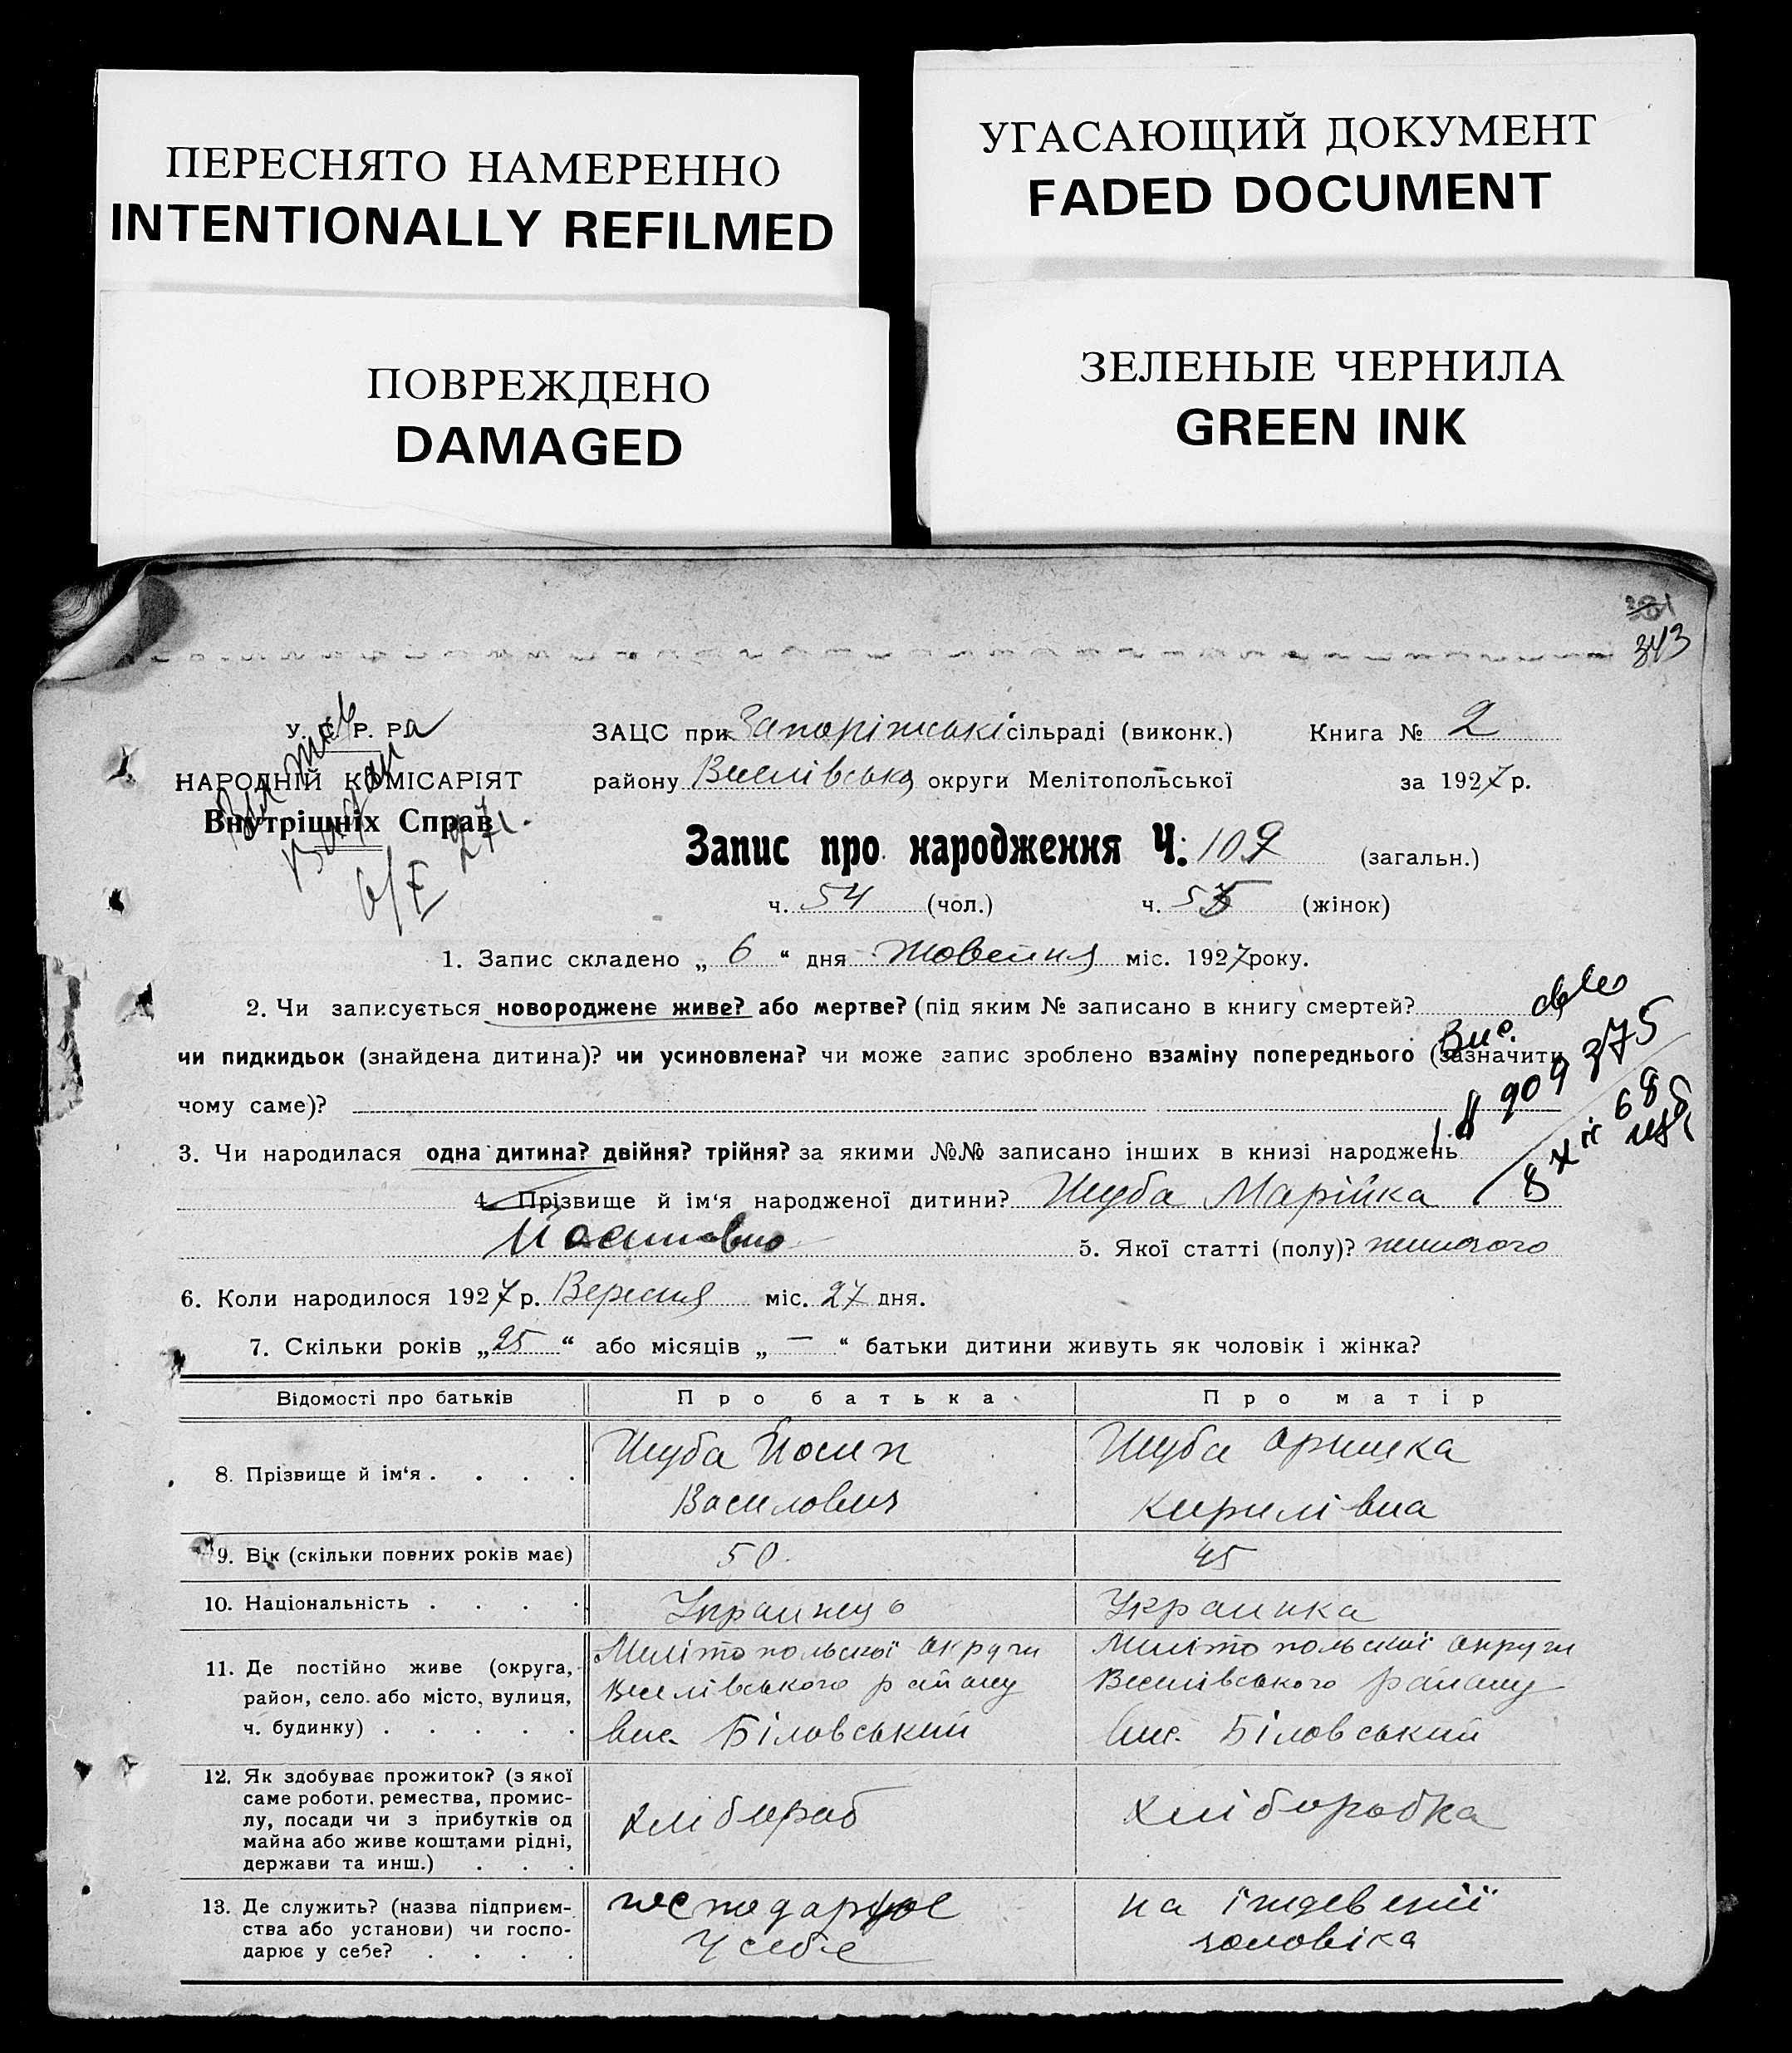 ПЕРЕСНЯТО НАМЕРЕННО
INTENTIONALLY REFILMED
УГАСАЮЩИЙ ДОКУМЕНТ
FADED DOCUMENT
ПОВРЕЖДЕНО
DAMAGED
ЗЕЛЕНЫЕ ЧЕРНИЛА
GREEN INK
343
У. С. Р. Р.
НАРОДНІЙ КОМІСАРІЯТ
Внутрішніх Справ
ЗАЦС при Запоріжські сільраді (виконк.) Книга № 2
району Веселівськ округи Мелітопольської за 1927 р.
Запис про народження Ч. 109 (загальн.)
ч. 54 (чол.) ч. 55 (жінок)
1. Запис складено „ 6 “ дня Жовтня міс. 1927 року.
2. Чи записується новороджене живе? або мертве? (під яким № записано в книгу смертей?
чи пидкидьок (знайдена дитина)? чи усиновлена? чи може запис зроблено взаміну попереднього (зазначити
чому саме)?
Вис.
909375
3. Чи народилася одна дитина? двійня? трійня? за якими №№ записано інших в книзі народжень
4. Прізвище й ім‘я народженої дитини? Шуба Марійка
Йосиповна 5. Якої статті (полу)? жиночого
6. Коли народилося 1927 р. Вересня міс. 27 дня.
7. Скільки років „25“ або місяців „ — “ батьки дитини живуть як чоловік і жінка?
Відомості про батьків Про батька Про матір
8. Прізвище й ім‘я . . . . Шуба Йосип Шуба Оришка
Василович Кирилівна
9. Вік (скільки повних років має) 50. 45
10. Національність . . . . Украинец Украинка
11. Де постійно живе (округа, Мелітопольскої округи Мелітопольскої округи
район, село або місто, вулиця, Веселівського району Веселівського району
ч. будинку) . . . . . вис. Біловський вис. Біловський
12. Як здобуває прожиток? (з якої
саме роботи, ремества, промис-
лу, посади чи з прибутків од хлібороб хліборобка
майна або живе коштами рідні,
держави та инш.) . . .
13. Де служить? (назва підприєм- господарює на їждевенії
ства або установи) чи госпо- у себе чоловіка
дарює у себе? . . . .